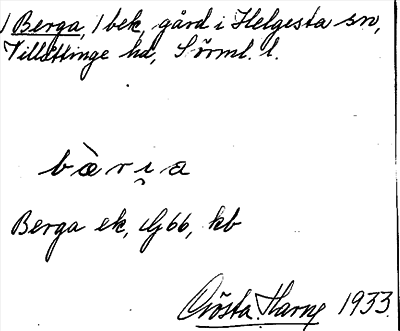 1 Berga, 1 bek, gård i Helgesta sn,
Villåttinge hd, Sörml. l.
bàri̯a
Berga ek, Gj 66, kb
Gösta Harne 1933